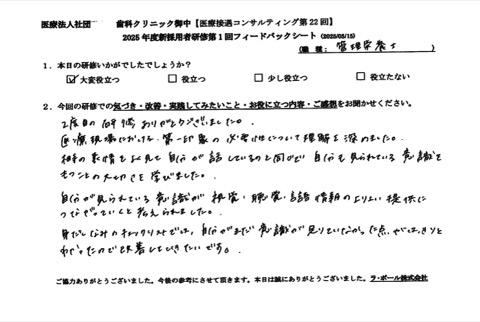 医療法人社団　　歯科クリニック御中【医療接遇コンサルティング第22回】
2025年度新採用者研修第1回フィードバックシート（2025/05/15）
（職　種：　管理栄養士　）
1．本日の研修いかがでしたでしょうか？
☑大変役立つ　□役立つ　□少し役立つ　□役立たない
2．今回の研修での気づき・改善・実践してみたいこと・お役に立つ内容・ご感想をお聞かせください。
2度目の研修ありがとうございました。
医療現場における、第一印象の必要性について理解を深めました。
相手の表情をよく見て自分が話しているのと同時に自分も見られている意識を
もつことの大切さを学びました。
自分が見られている意識が視覚・聴覚・言語情報のよりよい提供に
つながっていくと考えられました。
身だしなみのチェックリストでは、自分がまだ意識が足りていなかった点がはっきりと
わかったので改善していきたいです。
ご協力ありがとうございました。今後の参考にさせて頂きます。本日は誠にありがとうございました。ラ・ポール株式会社